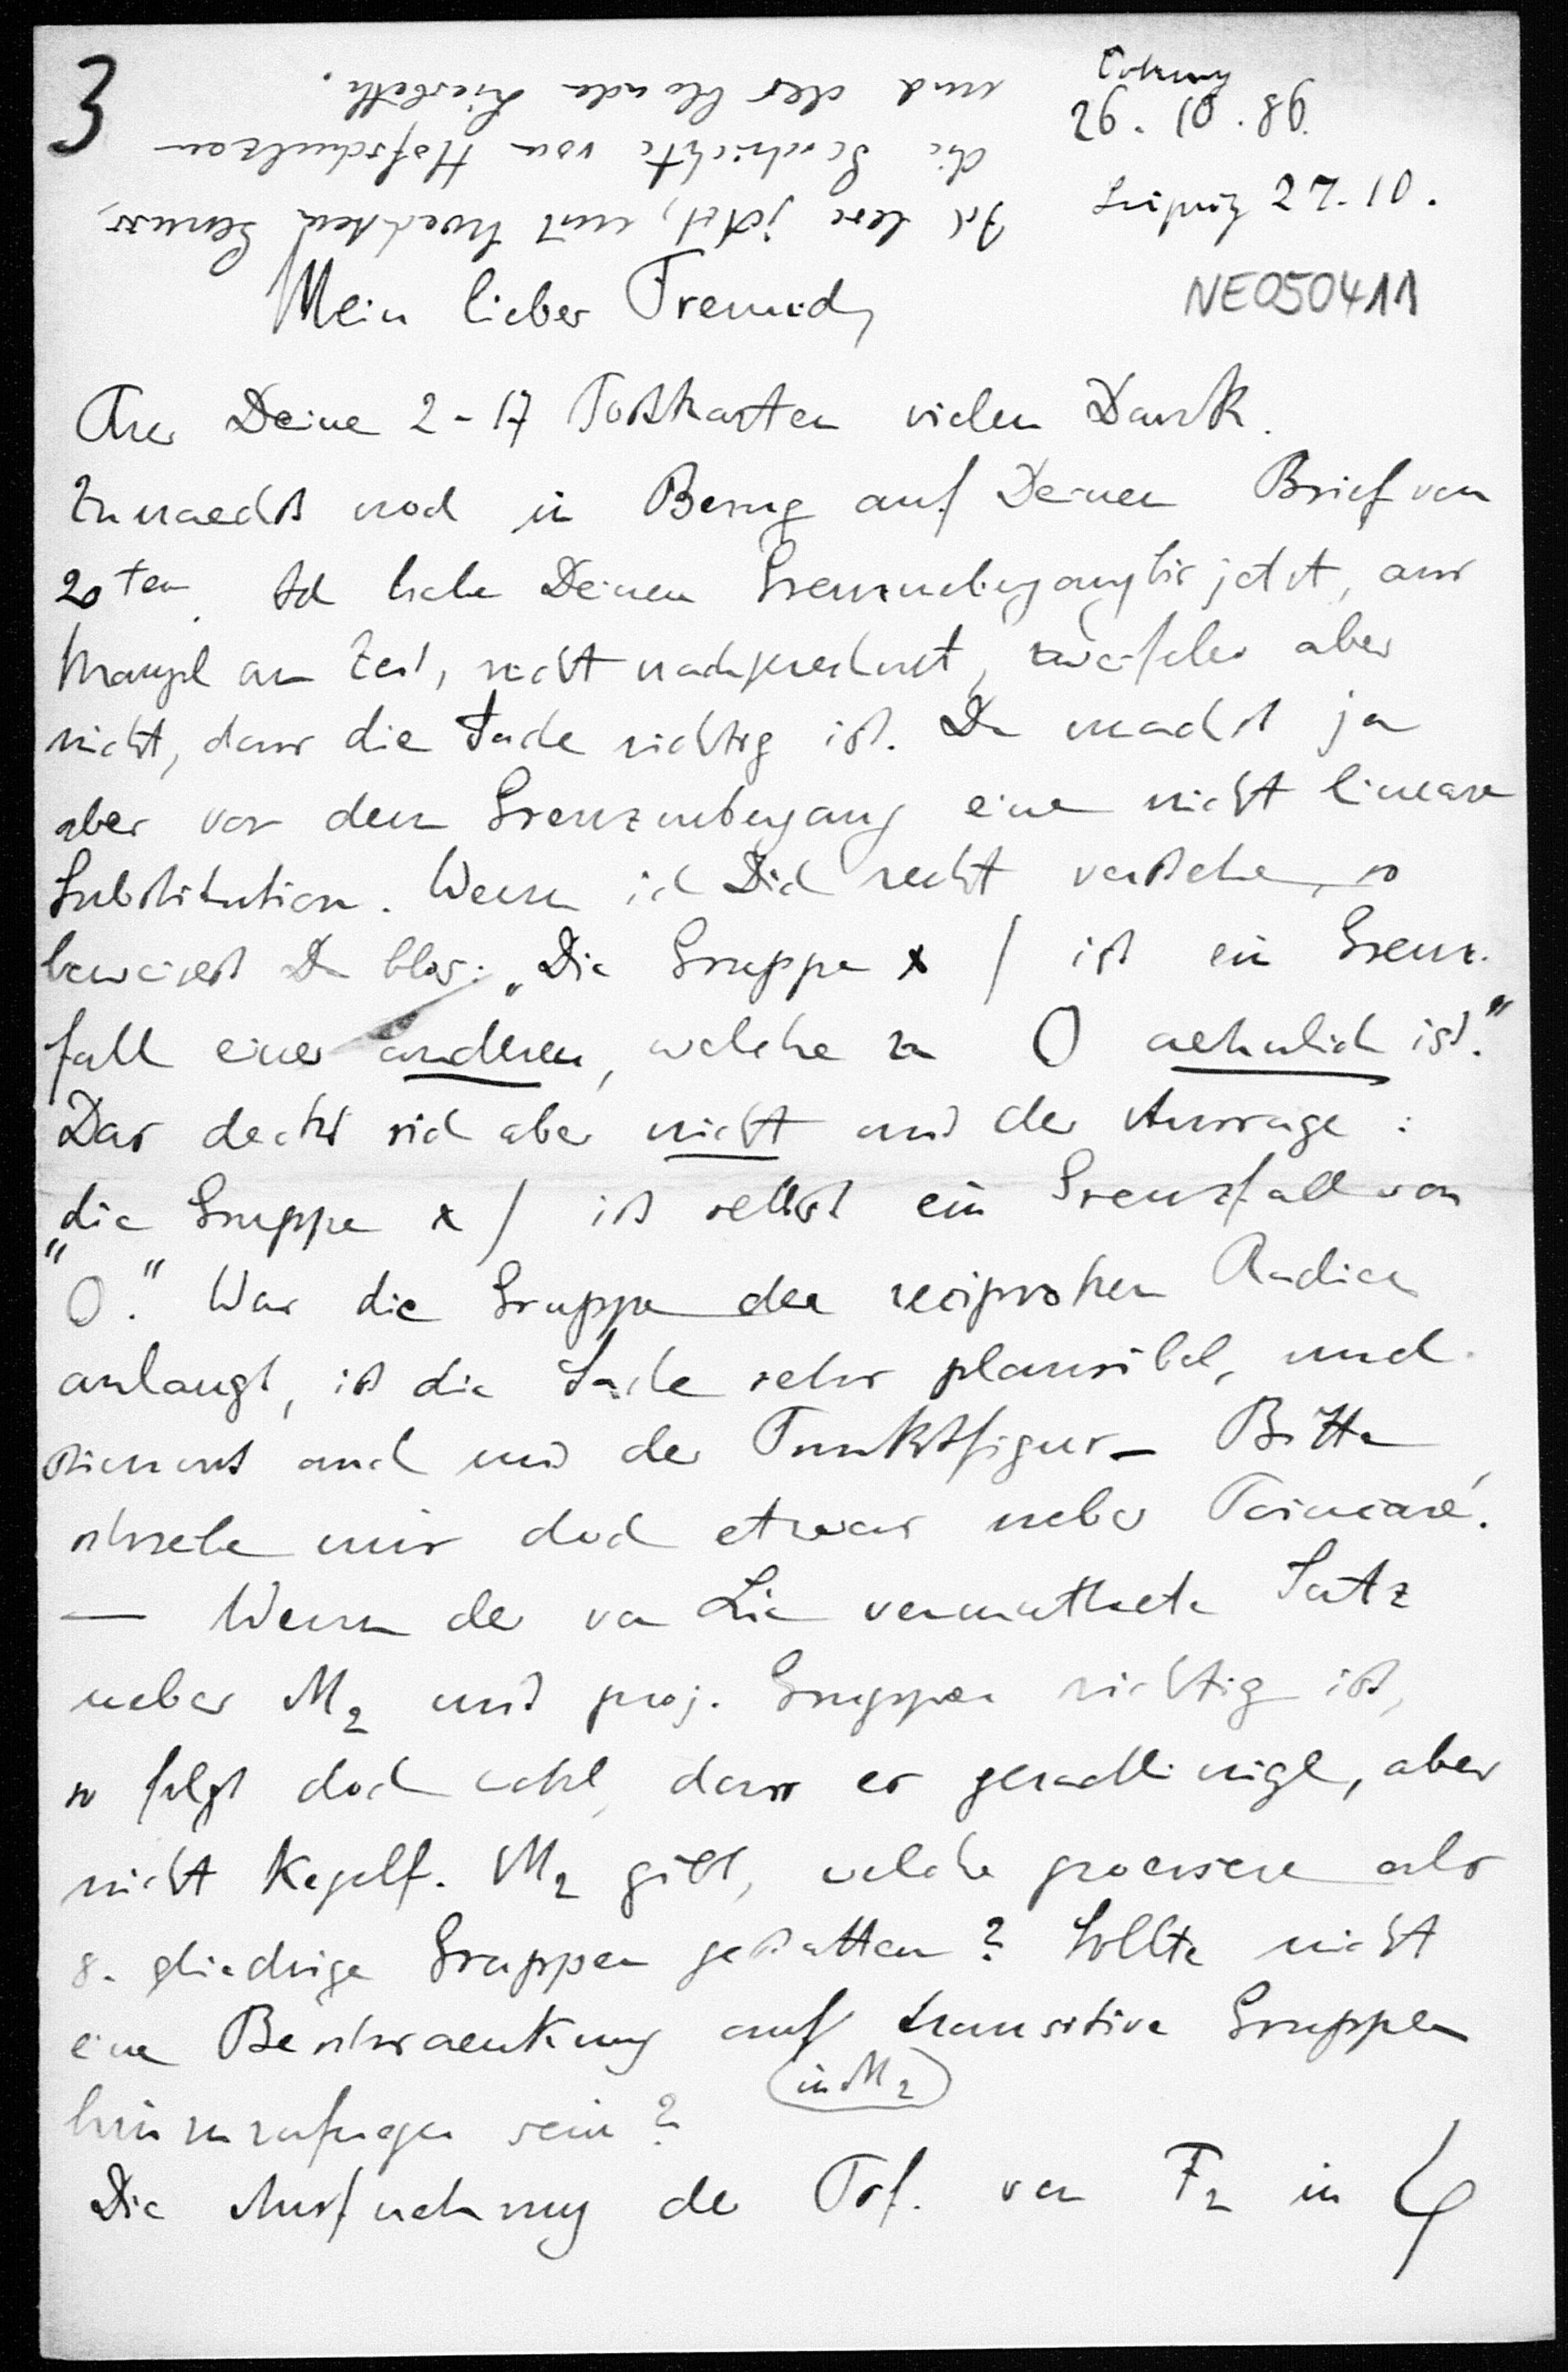 3
Coburg
26. 10. 86.
Leipzig 27. 10.
NE050411
Ich lese jetzt, mit hoechstem Genuss,
die Geschichte vom Hofschulzen
und der blonden Lisbeth.
Mein lieber Freund,
Fuer Deine 2-17 Postkarten vielen Dank.
Zunaechst noch in Bezug auf Deinen Brief vom
20ten. Ich habe Deinen Grenzuebergang bis jetzt, aus
Mangel an Zeit, nicht nachgerechnet, zweifele aber
nicht, dass die Sache richtig ist. Du machst ja
aber vor dem Grenzuebergang eine nicht lineare
Substitution. Wenn ich Dich recht verstehe, so
beweisest Du blos: „Die Gruppe x / ist ein Grenz-
fall einer anderen, welche zu O aehnlich ist."
Das deckt sich aber nicht mit der Aussage:
„die Gruppe x / ist selbst ein Grenzfall von
O." Was die Gruppe der reciproken Radien
anlangt, ist die Sache sehr plausibel, und
stimmt auch mit der Punktfigur – Bitte
schreibe mir doch etwas ueber Poincaré!
— Wenn der von Lie vermuthete Satz
ueber M2 mit proj. Gruppen richtig ist,
so folgt doch wohl, dass es geradlinige, aber
nicht Kegelf. M2 gibt, welche groessere als
8-gliedrige Gruppen gestatten? Sollte nicht
eine Beschraenkung auf transitive Gruppen
(in M2)
hinzuzufuegen sein?
Die Ausfuehrung der Trf. von F2 in